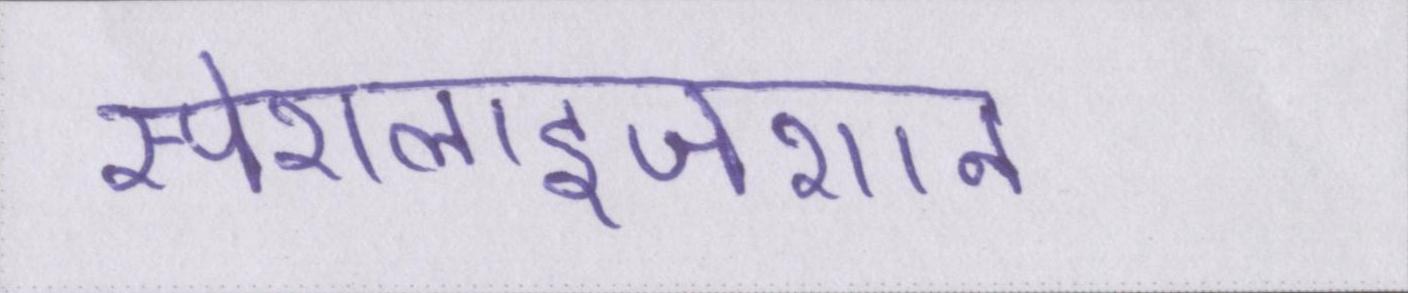 स्पेशलाइजशन